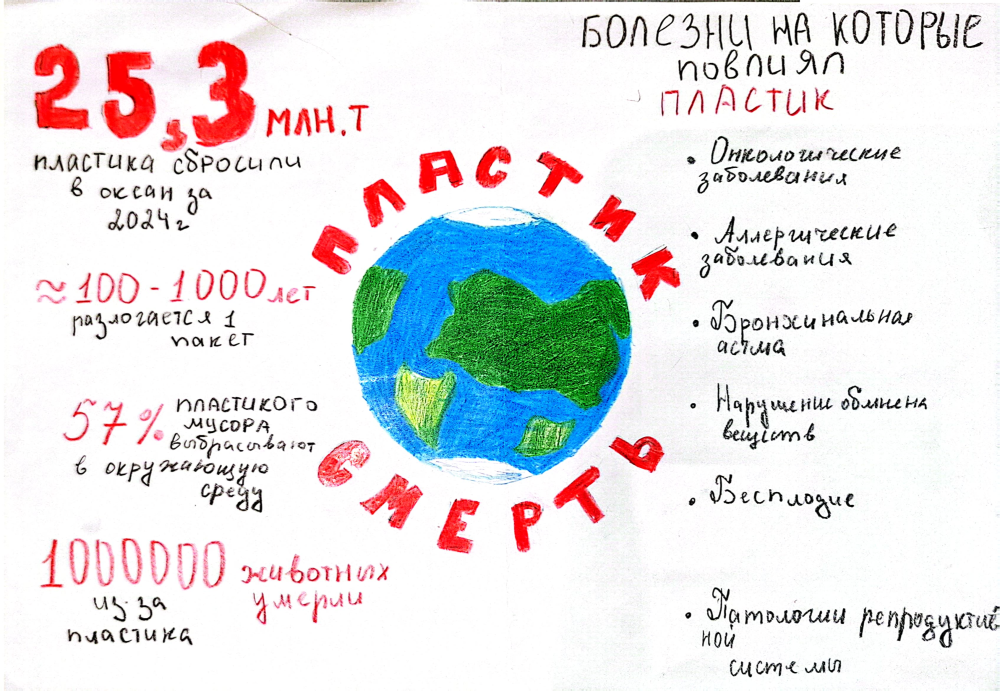 25,3 МЛН.Т
пластика сбросили
в океан за
2024г
≈100-1000 лет
разлогается 1
пакет
57% пластикого
мусора
выбрасывают
в окружающую
среду
1000000 животных
умерли
из за
пластика
ПЛАСТИК
СМЕРТЬ
БОЛЕЗНИ НА КОТОРЫЕ
ПОВЛИЯЛ
ПЛАСТИК
• Онкологические
заболевания
• Аллергические
заболевания
• Бронхинальная
астма
• Нарушение обмнена
веществ
• Бесплодие
• Патологии репродуктив
ной
системы